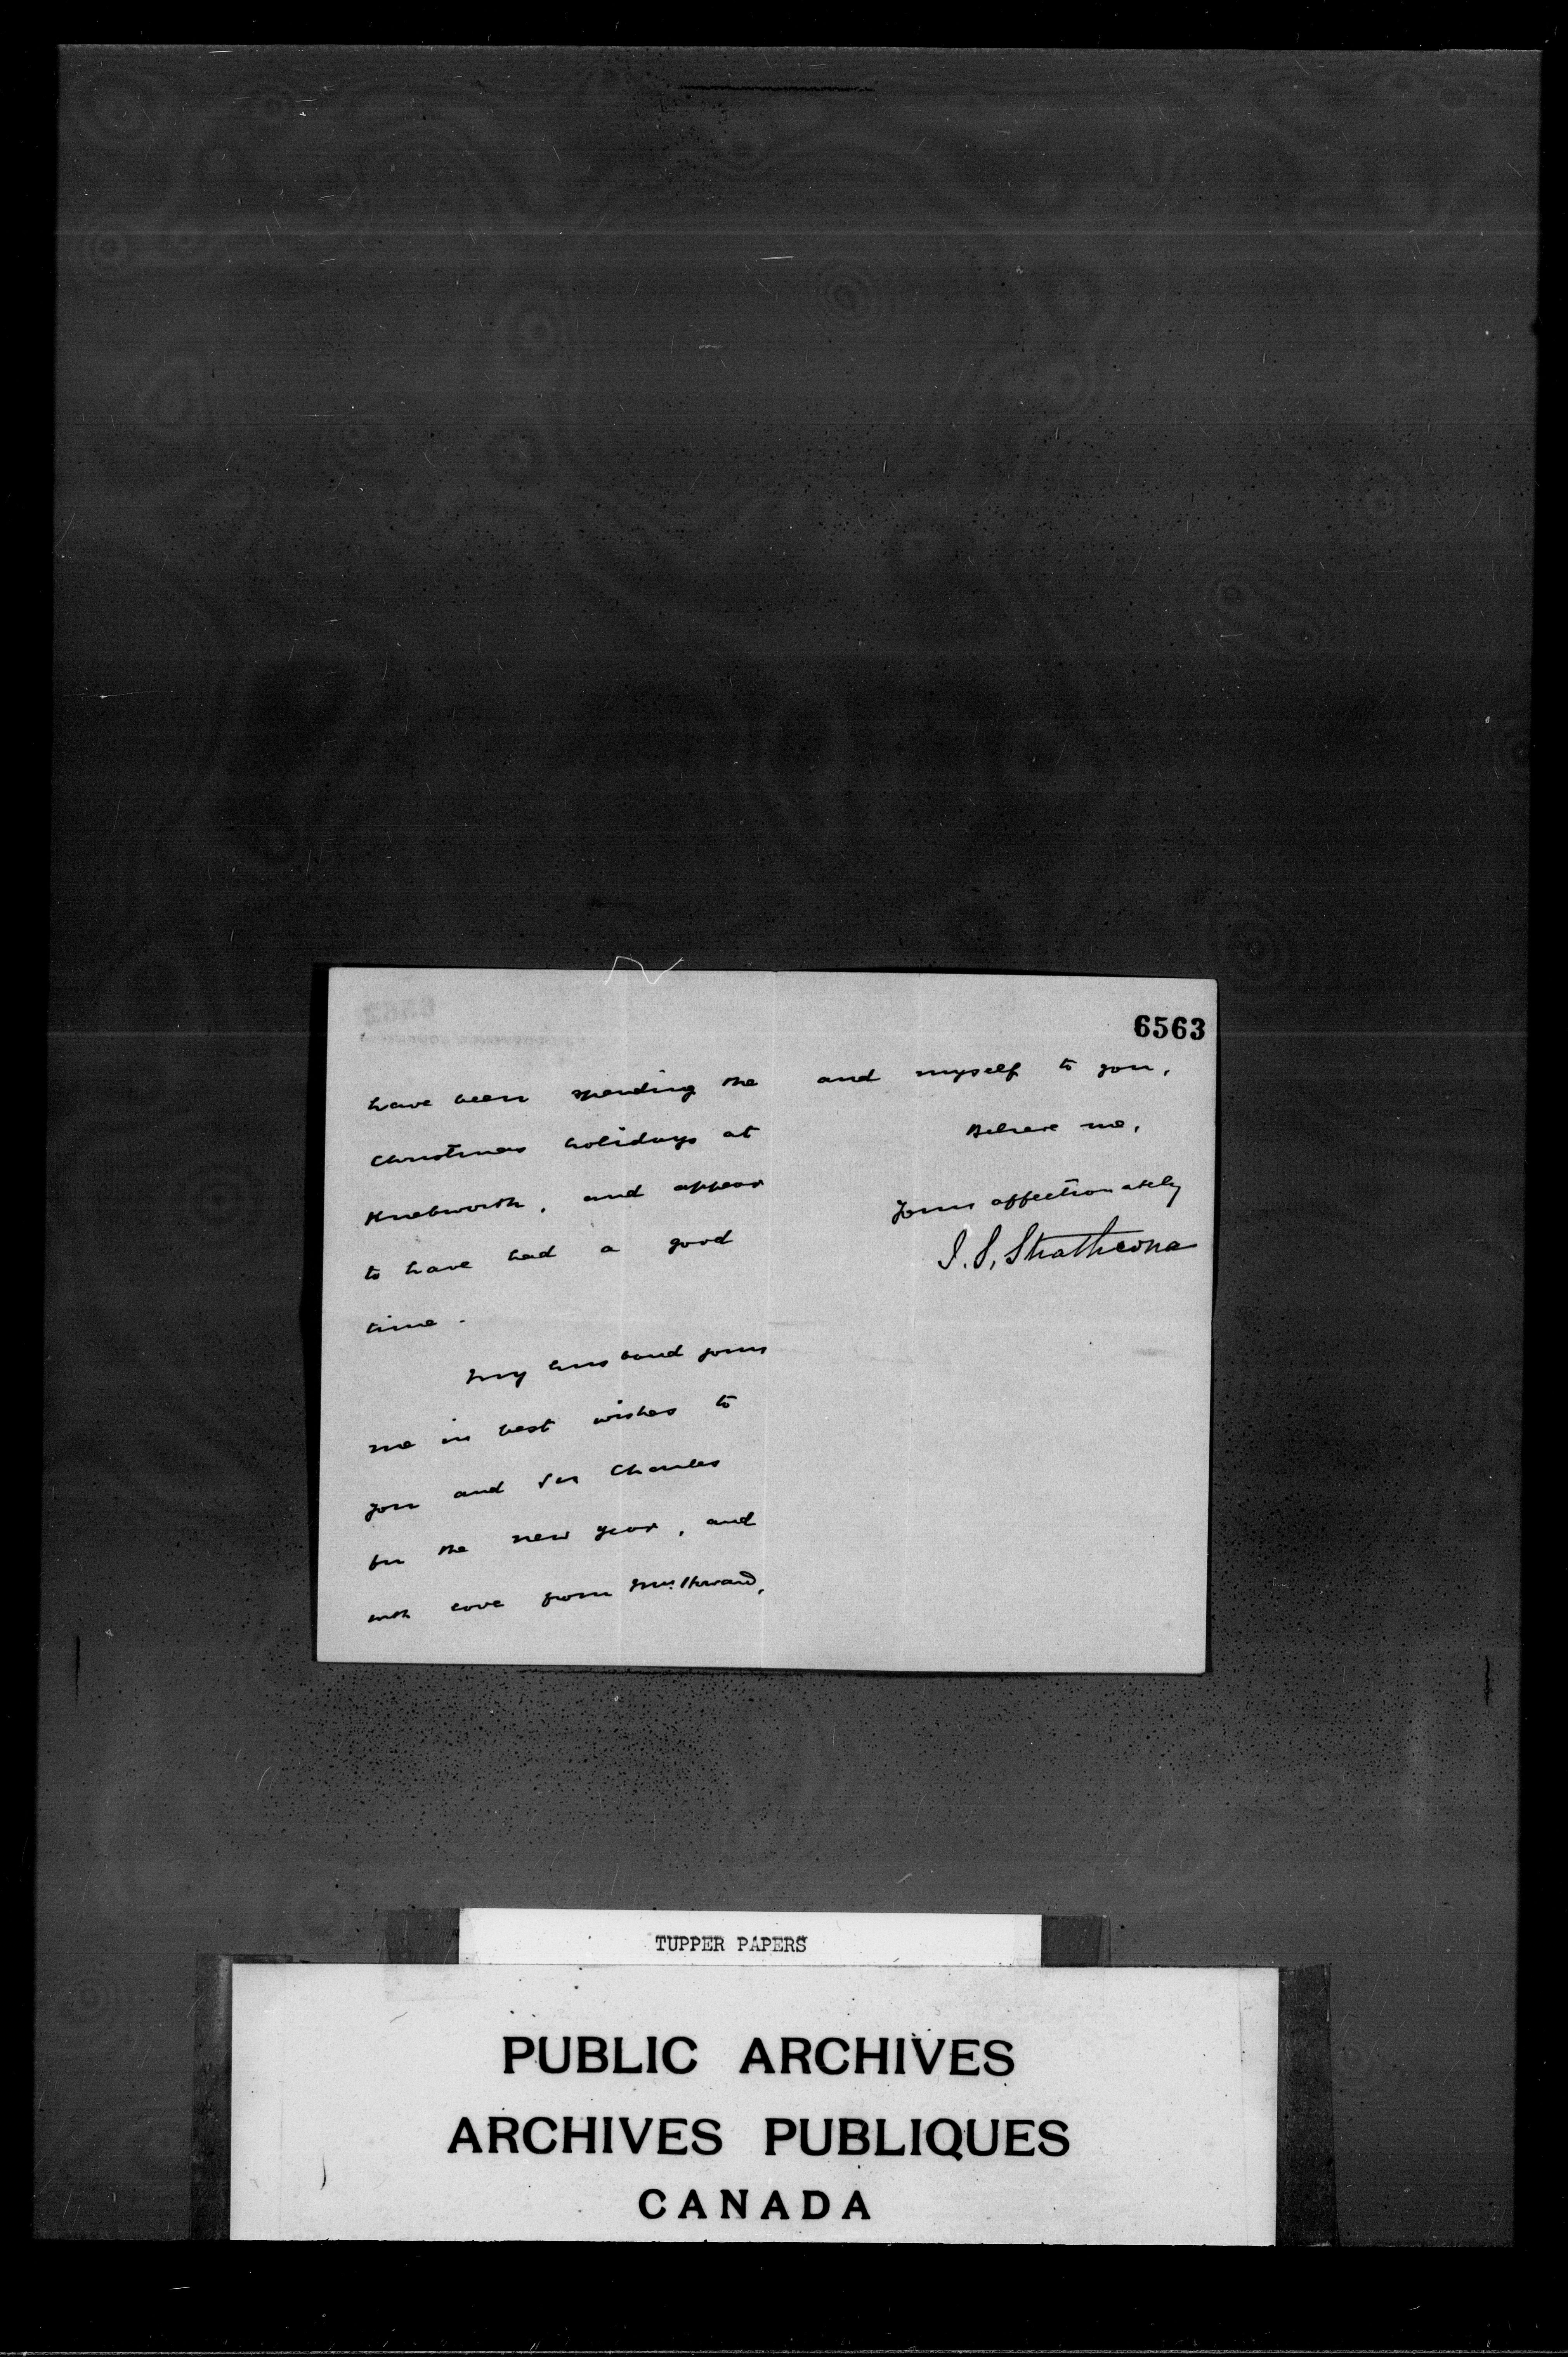 6563
have been spending the
Christmas holidays at
Knebworth, and appear
to have had a good
time.
My husband joins
me in best wishes to
you and Sir Charles
for the new year, and
with love from Mrs. Howard,
and myself to you,
Believe me,
Yours affectionately
I. S. Strathcona
TUPPER PAPERS
PUBLIC ARCHIVES
ARCHIVES PUBLIQUES
CANADA